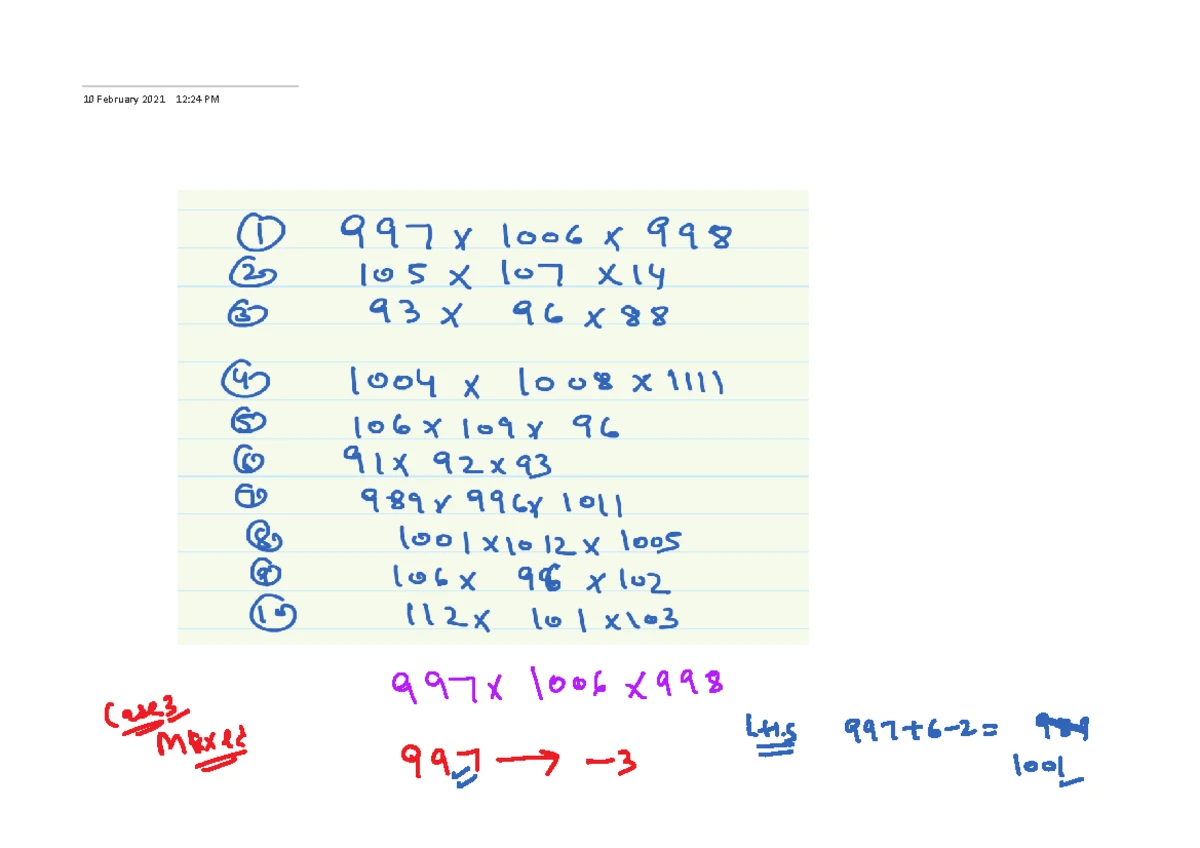 10 February 2021 12:24 PM
① 997 x 1006 x 998
② 105 x 107 x 14
③ 93 x 96 x 88
④ 1004 x 1008 x 1111
⑤ 106 x 109 x 96
⑥ 91 x 92 x 93
⑦ 989 x 996 x 1011
⑧ 1001 x 1012 x 1005
⑨ 106 x 98 x 102
⑩ 112 x 101 x 103
997 x 1006 x 998
Case 3
Mixed
997 → -3
L.H.S 997+6-2=
1001